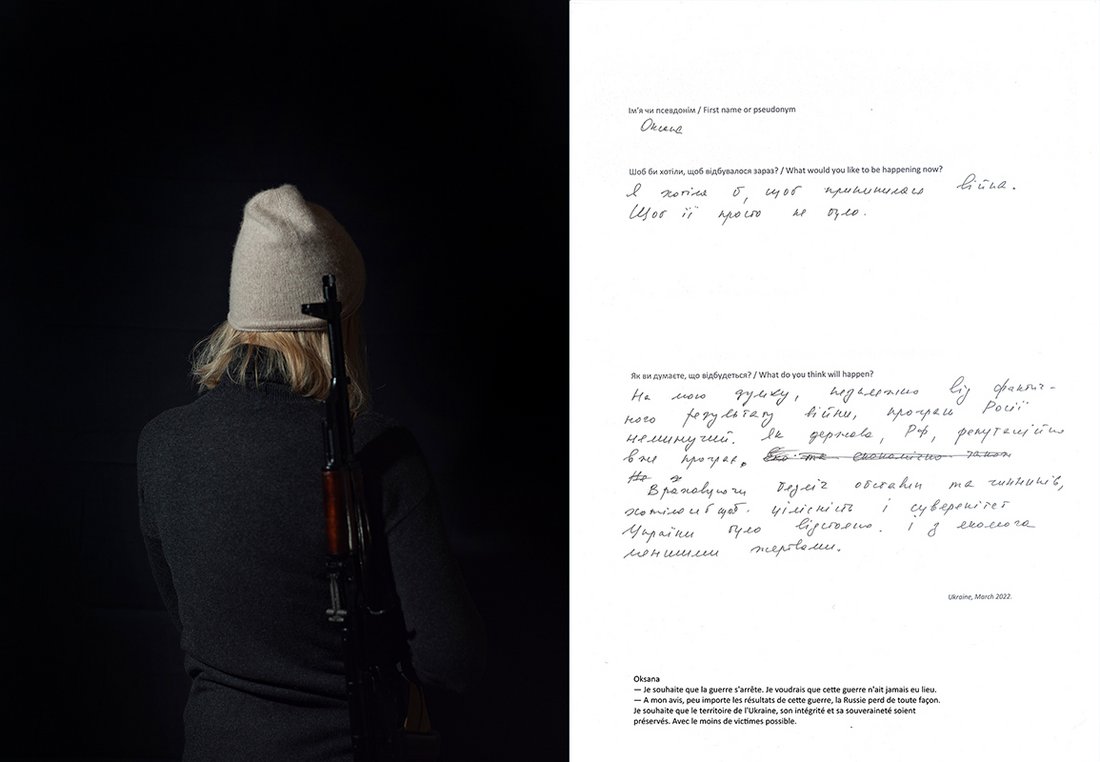 Ім'я чи псевдонім / First name or pseudonym
Оксана
Шоб би хотіли, щоб відбувалося зараз? / What would you like to be happening now?
Я хотіла б, щоб припинилася війна.
Щоб її просто не було.
Як ви думаєте, що відбудеться? / What do you think will happen?
На мою думку, незалежно від фактич-
ного результату війни, програш Росії
неминучий. Як держава, РФ, репутаційно
вже програє,
Враховуючи безліч обставин та чинників,
хотіло б щоб цілісність і суверенітет
України було відстояно. і з якомога
меншими жертвами.
Ukraine, March 2022.
Oksana
— Je souhaite que la guerre s'arrête. Je voudrais que cette guerre n'ait jamais eu lieu.
— A mon avis, peu importe les résultats de cette guerre, la Russie perd de toute façon.
Je souhaite que le territoire de l'Ukraine, son intégrité et sa souveraineté soient
préservés. Avec le moins de victimes possible.